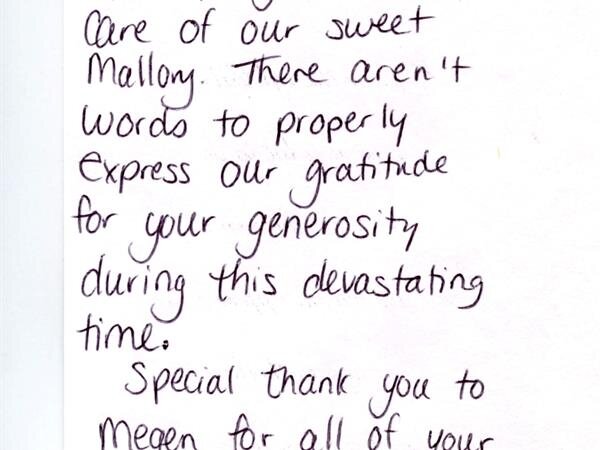 Care of our sweet
Mallory. There aren't
words to properly
express our gratitude
for your generosity
during this devastating
time.
Special thank you to
Megen for all of your